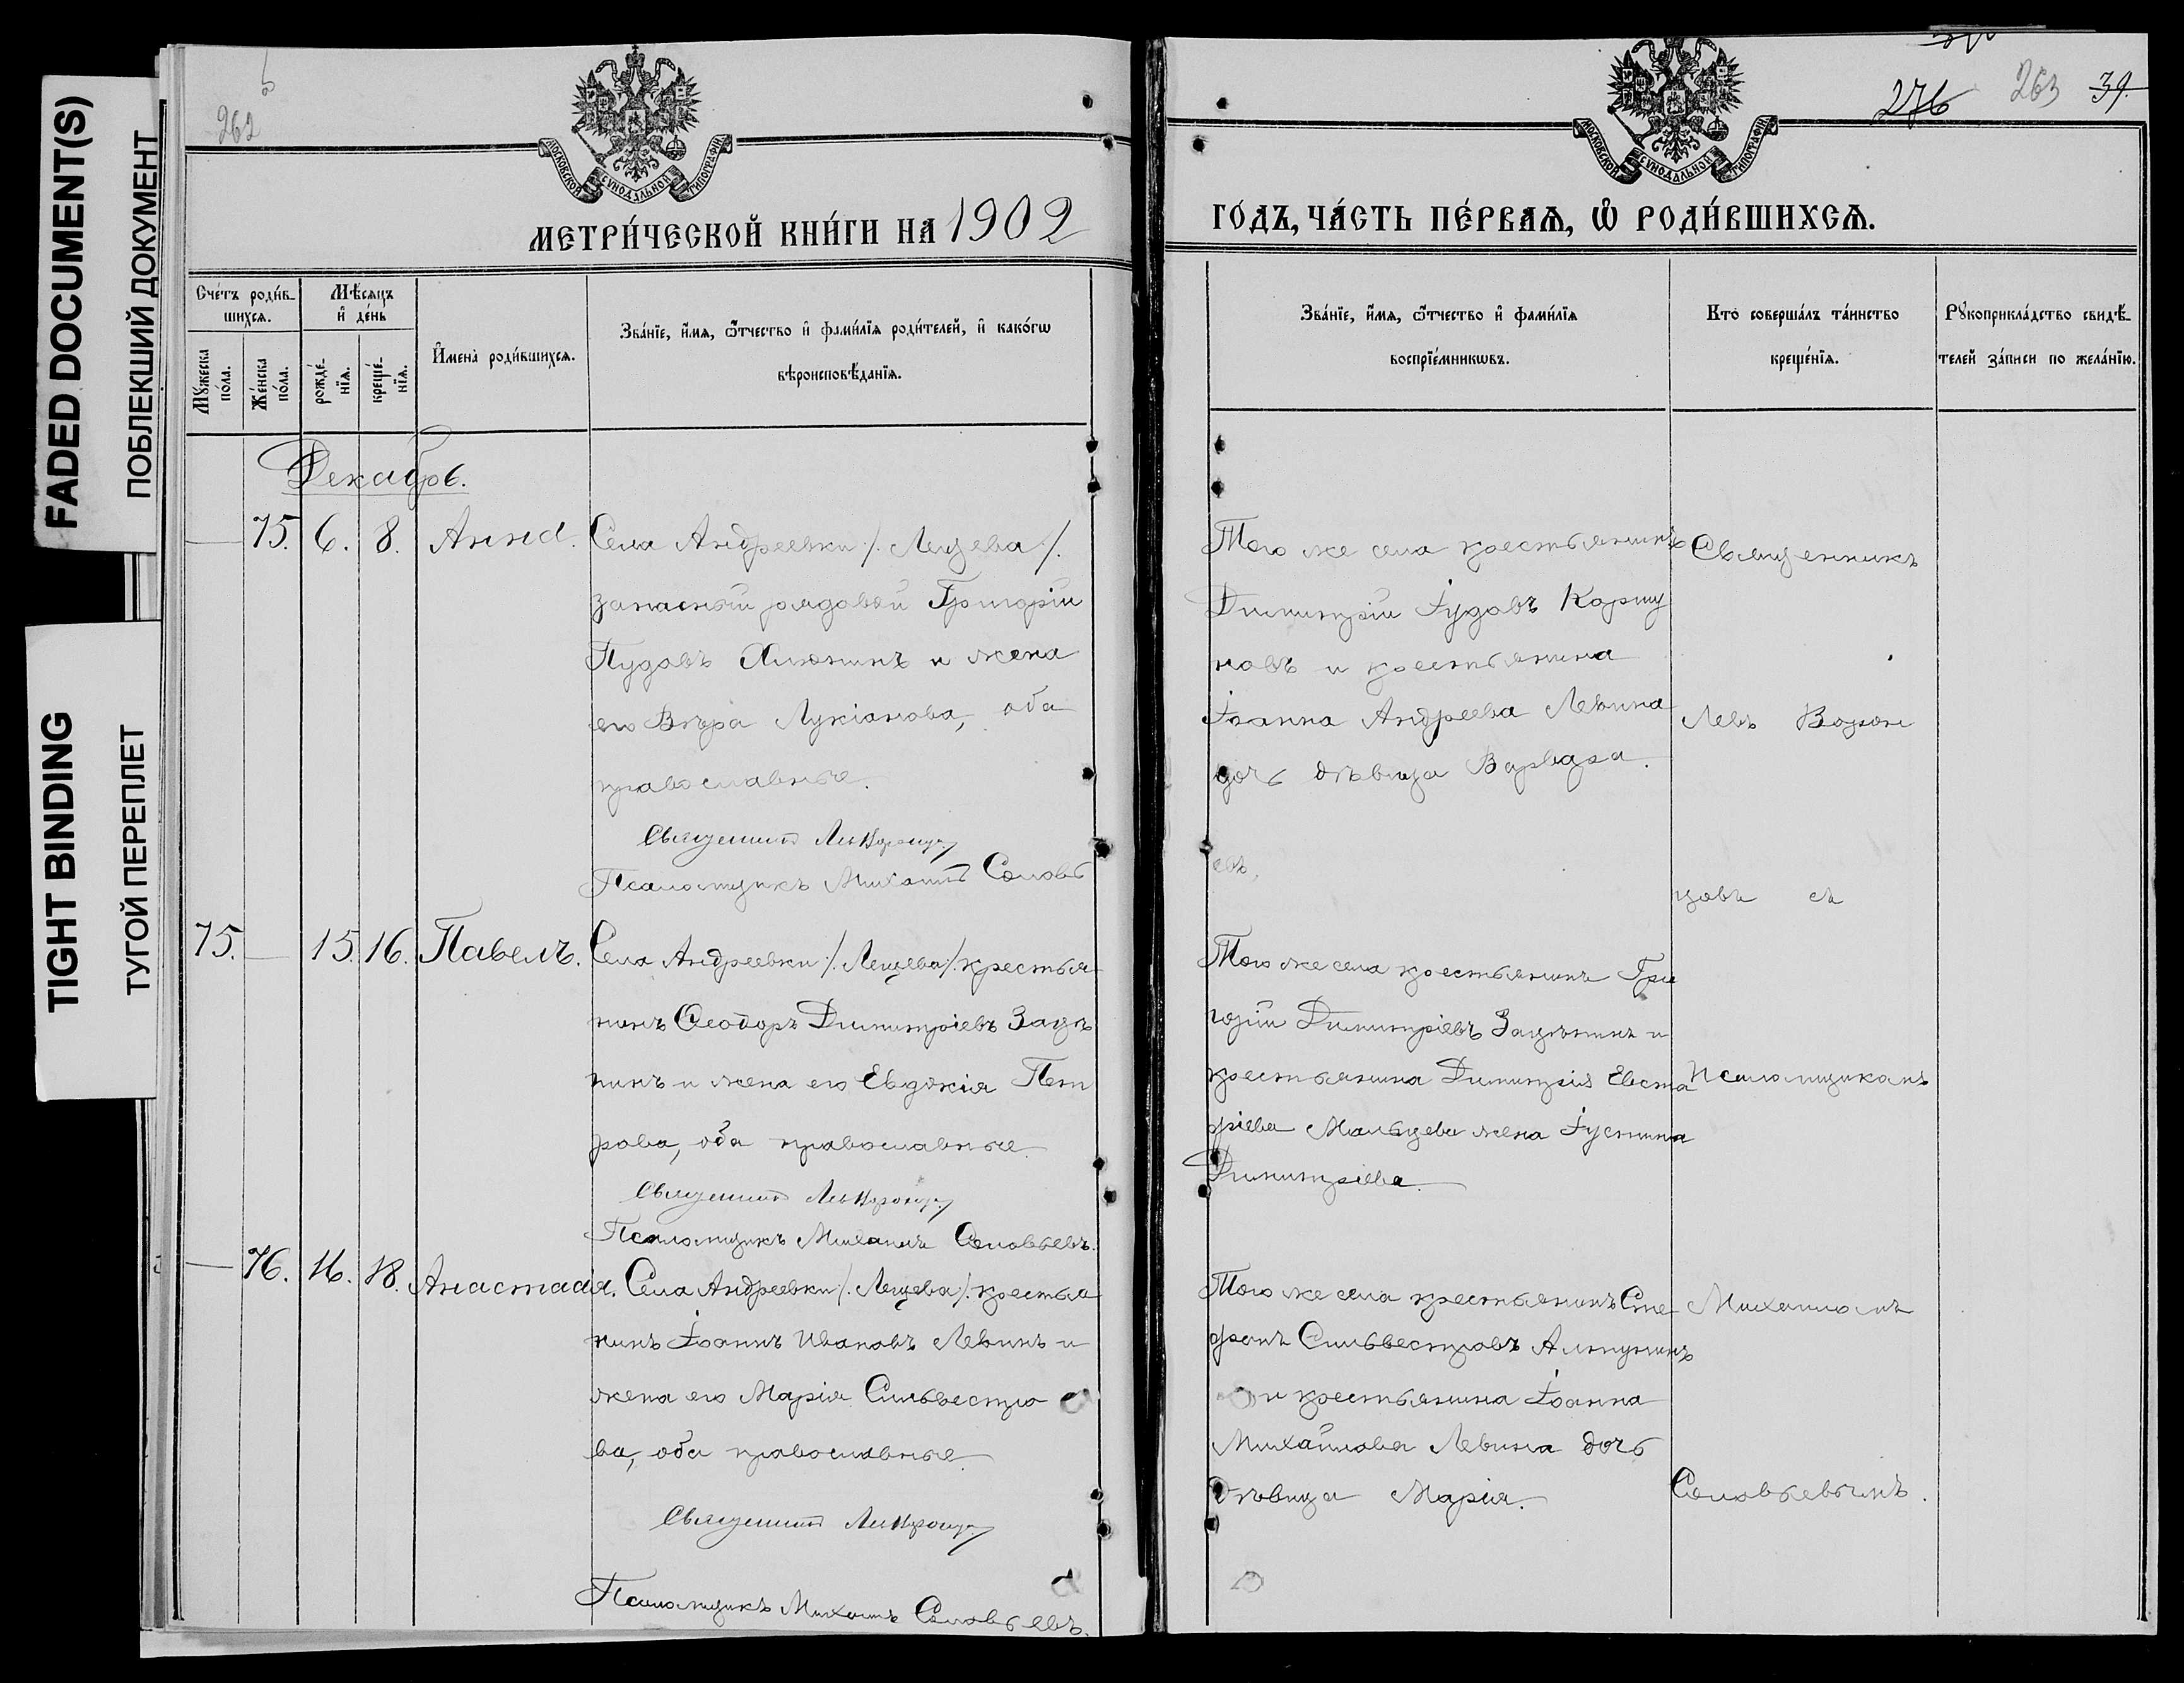 FADED DOCUMENT(S)
ПОБЛЕКШИЙ ДОКУМЕНТ
TIGHT BINDING
ТУГОЙ ПЕРЕПЛЕТ
262
МОСКОВСКОЙ СѴНОДАЛЬНОЙ ТИПОГРАФІИ
МЕТРИ́ЧЕСКОЙ КНИ́ГИ НА 1902
Сче́тъ роди́в-
шихсѧ.
Мѣ́сѧцъ
и҆ де́нь
Мꙋ́жеска
по́ла.
Же́нска
по́ла.
рожде́-
нїѧ.
креще́-
нїѧ.
И҆мена̀ роди́вшихсѧ.
Зва́нїе, и҆́мѧ, ѻ҆́тчество и҆ фами́лїѧ роди́телей, и҆ како́гѡ
вѣроисповѣ́данїѧ.
Декабрь.
— 75. 6. 8. Анна. Села Андреевки /. Лещева /.
запасный рядовой Григорій
Пудовъ Алюнинъ и жена
его Вѣра Лукіанова, оба
православные.
Священникъ Левъ
Псаломщикъ Михаилъ Соловь
75. — 15. 16. Павелъ. Села Андреевки /. Лещева /. крестья
нинъ Ѳеодоръ Димитріевъ Зацѣ
пинъ и жена его Евдокія Пет
рова, оба православные.
Священникъ Левъ
Псаломщикъ Михаилъ Соловьевъ.
— 76. 16. 18. Анастасія. Села Андреевки /. Лещева /. крестья
нинъ Іоаннъ Ивановъ Левинъ и
жена его Марія Сильвестро
ва, оба православные.
Священникъ Левъ
Псаломщикъ Михаилъ Соловьевъ.
276 263 39.
МОСКОВСКОЙ СѴНОДАЛЬНОЙ ТИПОГРАФІИ
ГО́ДЪ, ЧА́СТЬ ПЕ́РВАѦ, Ѡ҆ РОДИ́ВШИХСѦ.
Зва́нїе, и҆́мѧ, ѻ҆́тчество и҆ фами́лїѧ
воспрїе́мникѡвъ.
Кто̀ соверша́лъ та́инство
креще́нїѧ.
Рꙋкоприкла́дство свидѣ́-
телей за́писи по жела́нїю.
Того же села крестьянинъ
Димитрій Іудовъ Коршу
новъ и крестьянина
Іоанна Андреева Левина
дочь дѣвица Варвара.
евъ.
Того же села крестьянинъ Гри
горій Димитріевъ Зацѣпинъ и
крестьянина Димитрія Евста
фіева Мальцева жена Іустина
Димитріева.
Того же села крестьянинъ Сте
фанъ Сильвестровъ Алтунинъ
и крестьянина Іоанна
Михайлова Левина дочь
дѣвица Марія.
Священникъ
Левъ Ворон
цовъ съ
псаломщикомъ
Михаиломъ
Соловьевымъ.